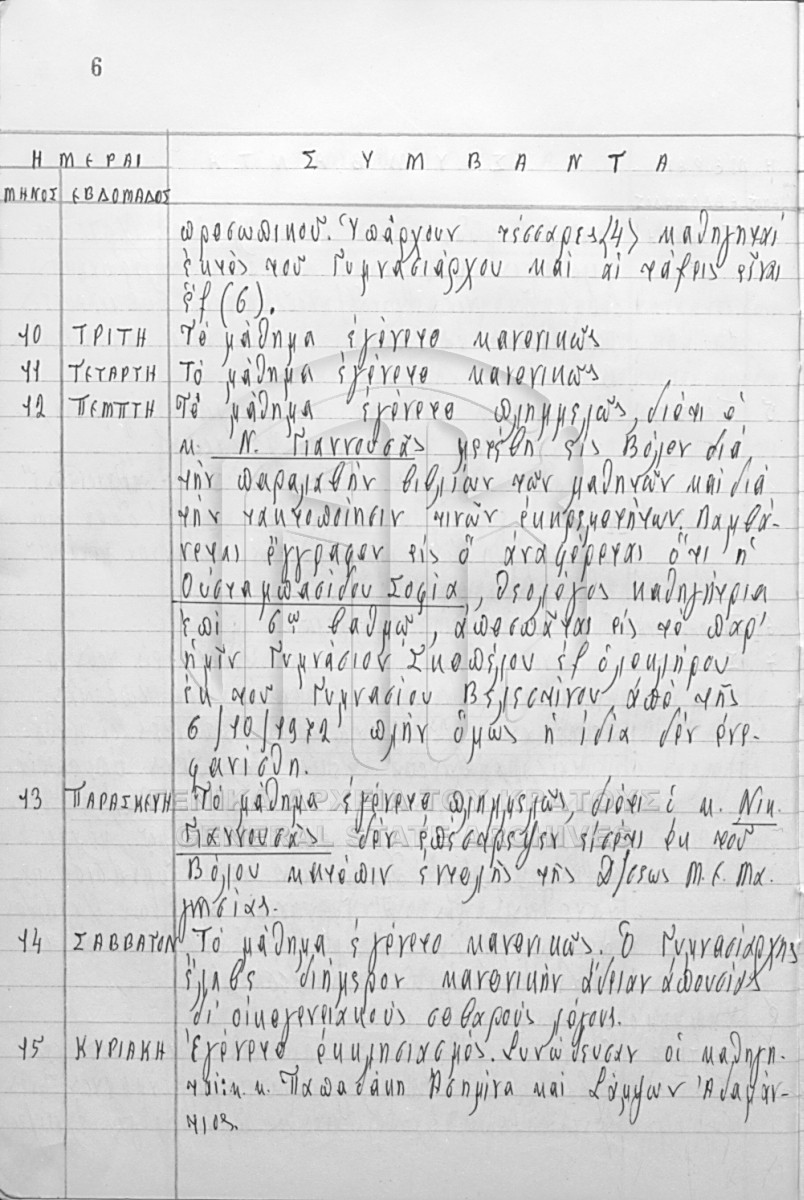 6
ΗΜΕΡΑΙ ΣΥΜΒΑΝΤΑ
ΜΗΝΟΣ ΕΒΔΟΜΑΔΟΣ
προσωπικοῦ. Ὑπάρχουν τέσσαρες (4) καθηγηταί
ἐκτός τοῦ Γυμνασιάρχου καί αἱ τάξεις εἶναι
ἕξ (6).
10 ΤΡΙΤΗ Τό μάθημα ἐγένετο κανονικῶς
11 ΤΕΤΑΡΤΗ Τό μάθημα ἐγένετο κανονικῶς
12 ΠΕΜΠΤΗ Τό μάθημα ἐγένετο πλημμελῶς, διότι ὁ
κ. Ν. Γιαννουσᾶς μετέβη εἰς Βόλον διά
τήν παραλαβήν βιβλίων τῶν μαθητῶν καί διά
τήν τακτοποίησιν τινῶν ἐκκρεμοτήτων. Λαμβά-
νεται ἔγγραφον εἰς ὅ ἀναφέρεται ὅτι ἡ
Οὐσταμπασίδου Σοφία, θεολόγος καθηγήτρια
ἐπί 5ῳ βαθμῷ, ἀποσπᾶται εἰς τό παρ'
ἡμῖν Γυμνάσιον Σκοπέλου ἐξ ὁλοκλήρου
ἐκ τοῦ Γυμνασίου Βελεστίνου ἀπό τῆς
6/10/1972 πλήν ὅμως ἡ ἰδία δέν ἐνε-
φανίσθη.
13 ΠΑΡΑΣΚΕΥΗ Τό μάθημα ἐγένετο πλημμελῶς, διότι ὁ κ. Νικ.
Γιαννουσᾶς δέν ἐπέστρεψεν εἰσέτι ἐκ τοῦ
Βόλου κατόπιν ἐντολῆς τῆς Δ/σεως Μ.Ε. Μα-
γνησίας.
14 ΣΑΒΒΑΤΟΝ Τό μάθημα ἐγένετο κανονικῶς. Ὁ Γυμνασιάρχης
ἔλαβε διήμερον κανονικήν ἄδειαν ἀπουσίας
δι' οἰκογενειακούς σοβαρούς λόγους.
15 ΚΥΡΙΑΚΗ Ἐγένετο ἐκκλησιασμός. Συνώδευσαν οἱ καθηγη-
ταί: κ.κ. Παπαδάκη Ἀσημίνα καί Σάμψων Ἀδαμάν-
τιος.
ΓΕΝΙΚΑ ΑΡΧΕΙΑ ΤΟΥ ΚΡΑΤΟΥΣ
GENERAL STATE ARCHIVES